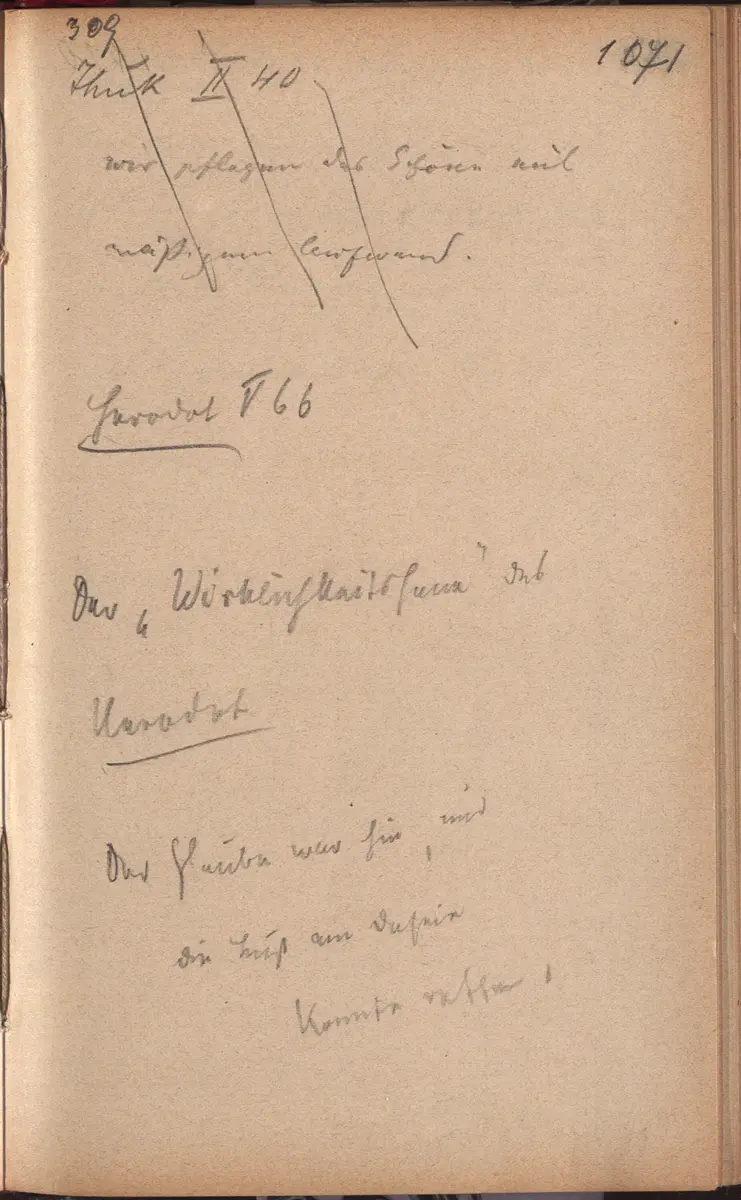 309
1071
Thuk II 40
wir pflegen das Schöne mit
mäßigem Aufwand.
Herodot V 66
Der „Wirklichkeitssinn" des
Herodot
Der Glaube war hin, und
die Lust am Dasein
konnte